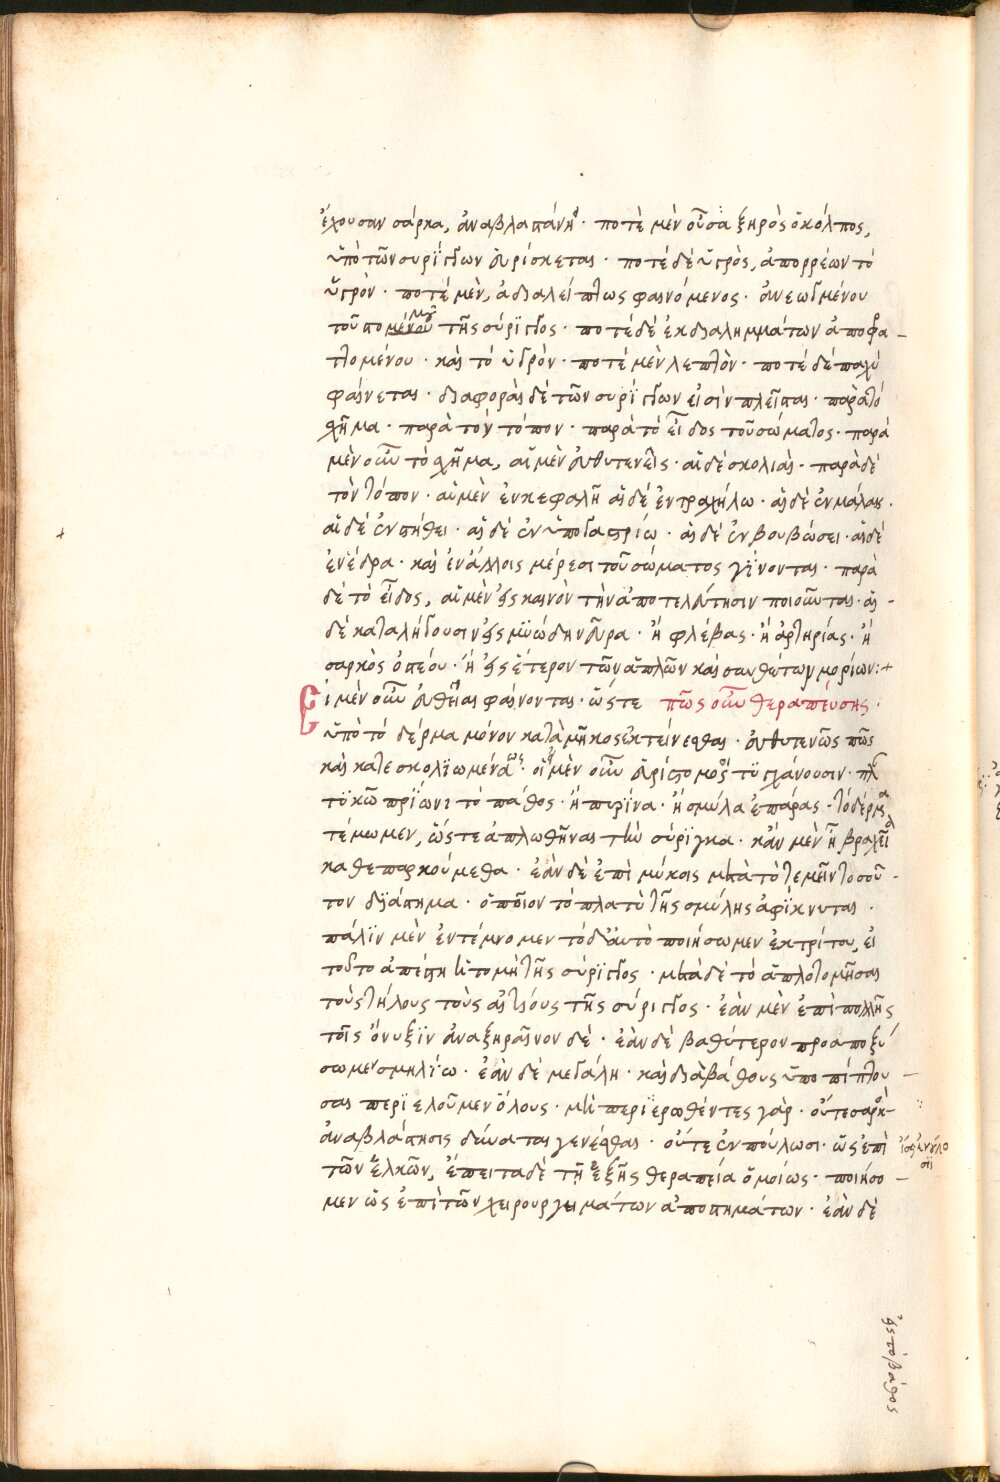 ἔχουσαν σάρκα, ἀναβλαστάνῃ · ποτὲ μὲν οὖσα ξηρὸς ὁ κόλπος,
ὑπὸ τῶν συρίγγων εὑρίσκεται · ποτὲ δὲ ὑγρὸς, ἀπορρέων τὸ
ὑγρόν · ποτὲ μὲν, ἀδιαλείπτως φαινόμενος · ἀνεωγμένου
τοῦ στομένου τῆς σύριγγος · ποτὲ δὲ ἐκ διαλημμάτων ἀποφρα
τομένου · καὶ τὸ ὑγρὸν · ποτὲ μὲν λεπτὸν · ποτὲ δὲ παχὺ
φαίνεται · διαφοραὶ δὲ τῶν συρίγγων εἰσὶν πλεῖσται · παρὰ τὸ
σχῆμα · παρὰ τὸν τόπον · παρὰ τὸ εἶδος τοῦ σώματος · παρὰ
μὲν οὖν τὸ σχῆμα, αἱ μὲν εὐθυτενεῖς · αἱ δὲ σκολιαὶ · παρὰ δὲ
τὸν τόπον · αἱ μὲν ἐν κεφαλῇ αἱ δὲ ἐν τραχήλω · αἱ δὲ ἐν μάλαις ·
αἱ δὲ ἐν στήθει · αἱ δὲ ἐν ὑπογαστρίω · αἱ δὲ ἐν βουβώσει · αἱ δὲ
ἐν ἕδρα · καὶ ἐν ἄλλοις μέρεσι τοῦ σώματος γίνονται · παρὰ
δὲ τὸ εἶδος, αἱ μὲν εἰς καινὸν τὴν ἀποτελεύτησιν ποιοῦνται · αἱ
δὲ καταλήγουσιν εἰς μυώδη νεῦρα · ἢ φλέβας · ἢ ἀρτηρίας · ἢ
σαρκὸς ὀστέου · ἢ εἰς ἕτερον τῶν ἁπλῶν καὶ συνθέτων μορίων :+
Εἰ μὲν οὖν εὐθεῖαι φαίνονται · ὥστε πῶς οὖν θεραπεύσης ·
ὑπὸ τὸ δέρμα μόνον κατὰ μῆκος ἐκτείνεσθαι · εὐθυτενῶς πῶς
καὶ κατεσκολιωμένως · εἰ μὲν οὖν
τὸ πάθος · ἢ πυρίνα · ἢ σμίλα ἐπάρας · τὸ δέρμα
τέμωμεν, ὥστε ἁπλωθῆναι τὴν σύριγκα · κἂν μὲν ἦ βραχεῖα
καθεπαρκούμεθα · ἐὰν δὲ ἐπὶ μύκοις μετὰ τὸ τεμεῖν τοσοῦ
τον διάστημα · ὁποῖον τὸ πλατὺ τῆς σμύλης ἀφίκνυται ·
πάλιν μὲν ἐντέμνομεν τὸ δ' αὐτὸ ποιήσωμεν ἐκ τρίτου, εἰ
τοῦτο ἀπέστη ἡ τομὴ τῆς σύριγγος · μετὰ δὲ τὸ ἁπλοτομῆσαι
τοὺς τήλους τοὺς αἰτίους τῆς σύριγγος · ἐὰν μὲν ἐπὶ πολλῆς
τοῖς ὄνυξιν ἀναξηραῖνον δὲ · ἐὰν δὲ βαθύτερον προαποξύ
σωμεν σμηλίω · ἐὰν δὲ μεγάλη · καὶ διὰ βάθους ὑποπίπτου
σαι περιελοῦμεν ὅλους · μὴ περιερωθέντες γὰρ · οὔτε σαρκ
ἀναβλάστησις δύναται γενέσθαι · οὔτε ἐν πούλωσι · ὡς ἐπὶ
τῶν ἑλκῶν, ἔπειτα δὲ τῇ ἑξῆς θεραπεία ὁμοίως · ποιήσο
μεν ὡς ἐπὶ τῶν χειρουργημάτων ἀποστημάτων · ἐὰν δὲ
εἰς τὸ βάθος